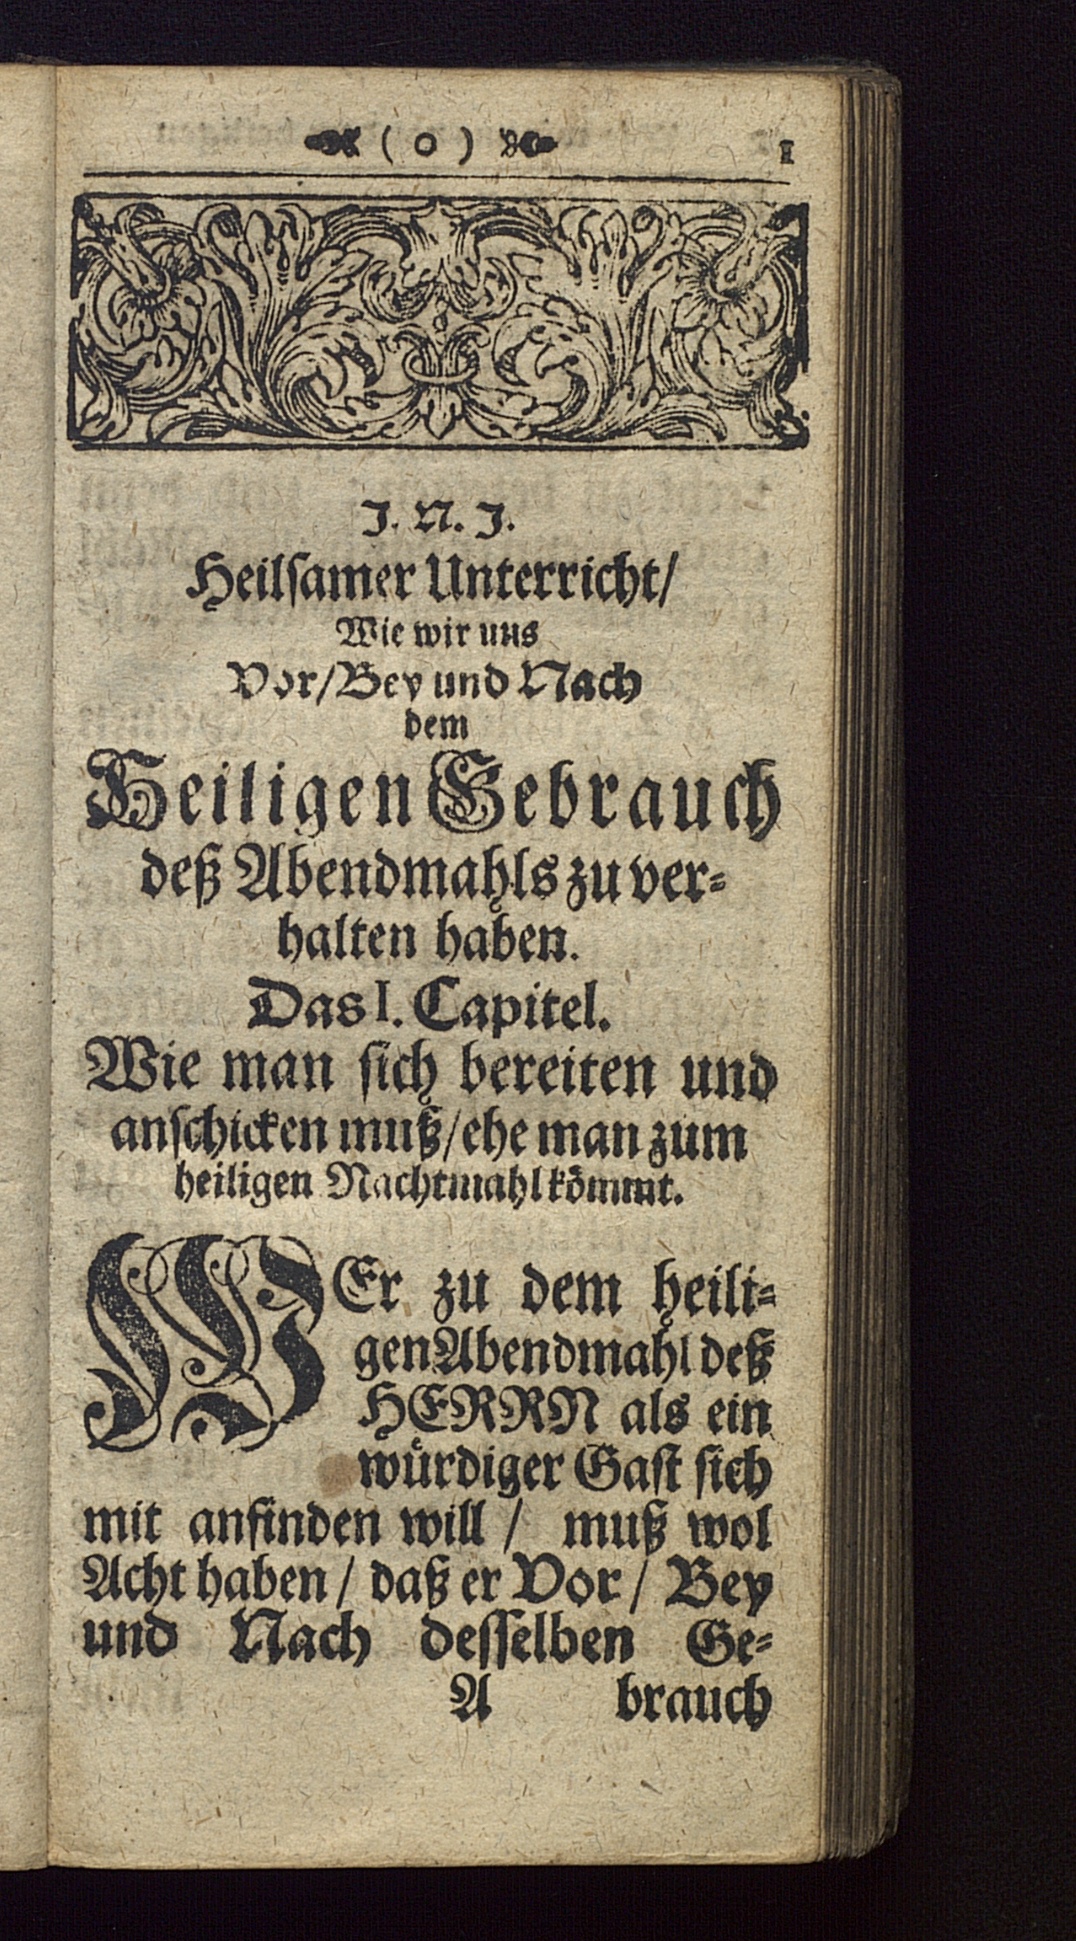 ( o ) 1
J. N. J.
Heilsamer Unterricht/
Wie wir uns
Vor/Bey und Nach
dem
Heiligen Gebrauch
deß Abendmahls zu ver-
halten haben.
Das I. Capitel.
Wie man sich bereiten und
anschicken muß/ehe man zum
heiligen Nachtmahl kömmt.
WEr zu dem heili-
gen Abendmahl deß
HERRN als ein
würdiger Gast sich
mit anfinden will / muß wol
Acht haben / daß er Vor / Bey
und Nach desselben Ge-
A brauch